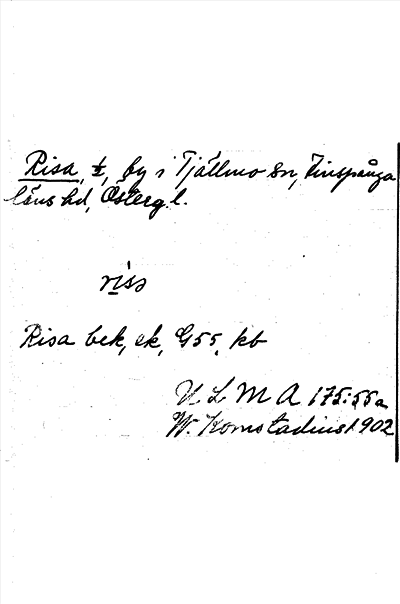 Risa, ½, by i Tjällmo sn, Finspånga
läns hd, Östergl.
riså
Risa bek, ek, G55, kb
U L M A 175:55a
W. Komstadius 1902